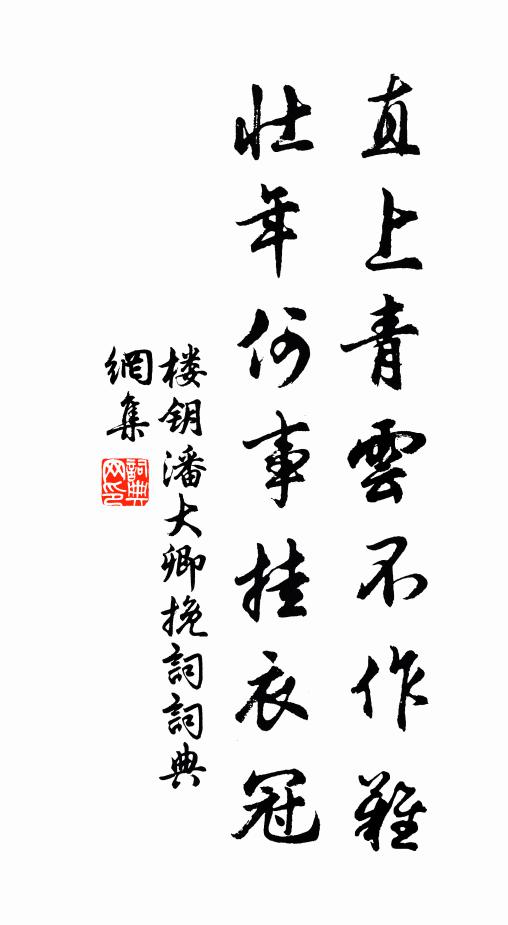 直上青雲不作難
壮年何事挂衣冠
楼钥潘大卿挽詞詞典
網集
詞典
网印